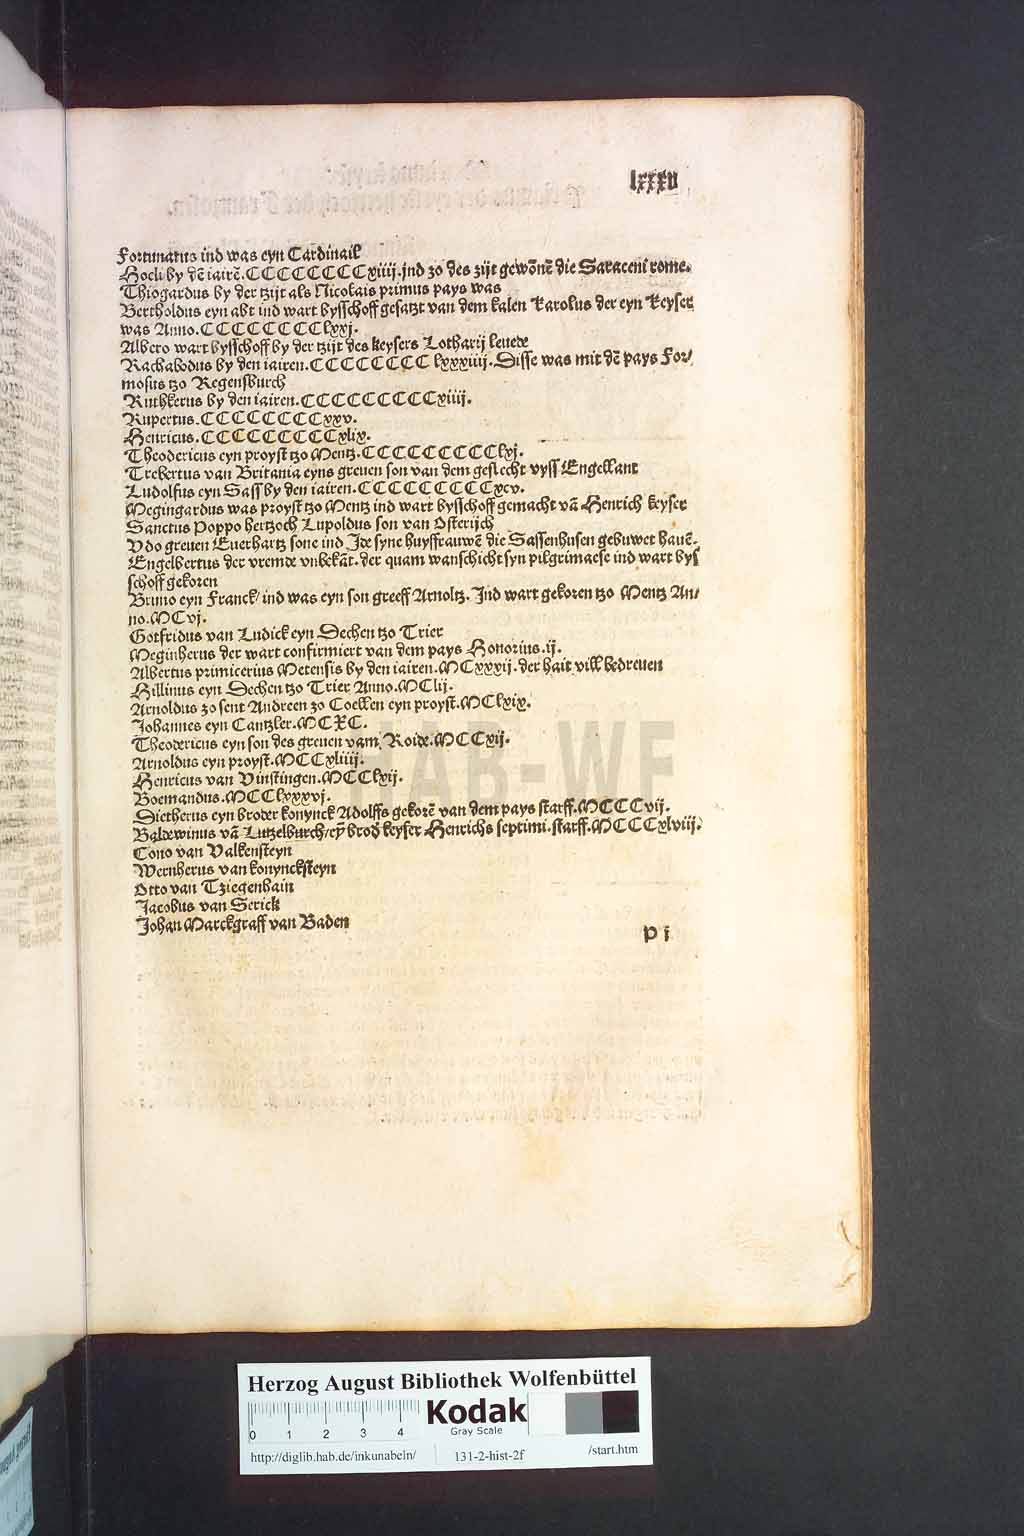 lxxxv
Fortunatus ind was eyn Cardinail
Hocli by dē iairē.CCCCCCCCxiiij.jnd zo des zijt gewōnē die Saraceni rome.
Thiogardus by der tzijt als Nicolais primus pays was
Bertholdus eyn abt ind wart bysschoff gesatzt van dem kalen Karolus der eyn Keyser
was Anno.CCCCCCCClxxj.
Albero wart bysschoff by der tzijt des keysers Lotharij leuede
Rachabodus by den iairen.CCCCCCCC lxxxiiij.Disse was mit dē pays For/
mosus tzo Regensburch
Ruthkerus by den iairen.CCCCCCCCCxiiij.
Rupertus.CCCCCCCCxxv.
Henricus.CCCCCCCCCxlix.
Theodericus eyn proyst tzo Mentz.CCCCCCCCClxj.
Trebertus van Britania eyns greuen son van dem geslecht vyss Engellant
Ludolfus eyn Sass by den iairen.CCCCCCCCCxcv.
Megingardus was proyst tzo Mentz ind wart bysschoff gemacht vā Henrich keyser
Sanctus Poppo hertzoch Lupoldus son van Osterijch
Vdo greuen Euerhartz sone ind Ide syne huyssfrauwē die Sassenhusen gebuwet hauē.
Engelbertus der vremde vnbekāt.der quam wanschicht syn pilgrimaese ind wart bys
schoff gekoren
Bruno eyn Franck/ind was eyn son greeff Arnoltz.Ind wart gekoren tzo Mentz An/
no.MCvj.
Gotfridus van Ludick eyn Dechen tzo Trier
Meginherus der wart confirmiert van dem pays Honorius.ij.
Albertus primicerius Metensis by den iairen.MCxxxij.der hait vill bedreuen
Hillinus eyn Dechen tzo Trier Anno.MClij.
Arnoldus zo sent Andreen zo Coellen eyn proyst.MClxix.
Johannes eyn Cantzler.MCXC.
Theodericus eyn son des greuen vam Roide.MCCxij.
Arnoldus eyn proyst.MCCxliiij.
Henricus van Vinstingen.MCClxij.
Boemandus.MCClxxxvj.
Dietherus eyn broder konynck Adolffs gekorē van dem pays starff.MCCCvij.
Baldewinus vā Lutzelburch/eyn brod keyser Henrichs septimi.starff.MCCCxlviij.
Cono van Valkensteyn
Wernherus van konyncksteyn
Otto van Tziegenhain
Jacobus van Serick
Johan Marckgraff van Baden
p i
HAB-WF
Herzog August Bibliothek Wolfenbüttel
0 1 2 3 4
Kodak
Gray Scale
http://diglib.hab.de/inkunabeln/ 131-2-hist-2f /start.htm